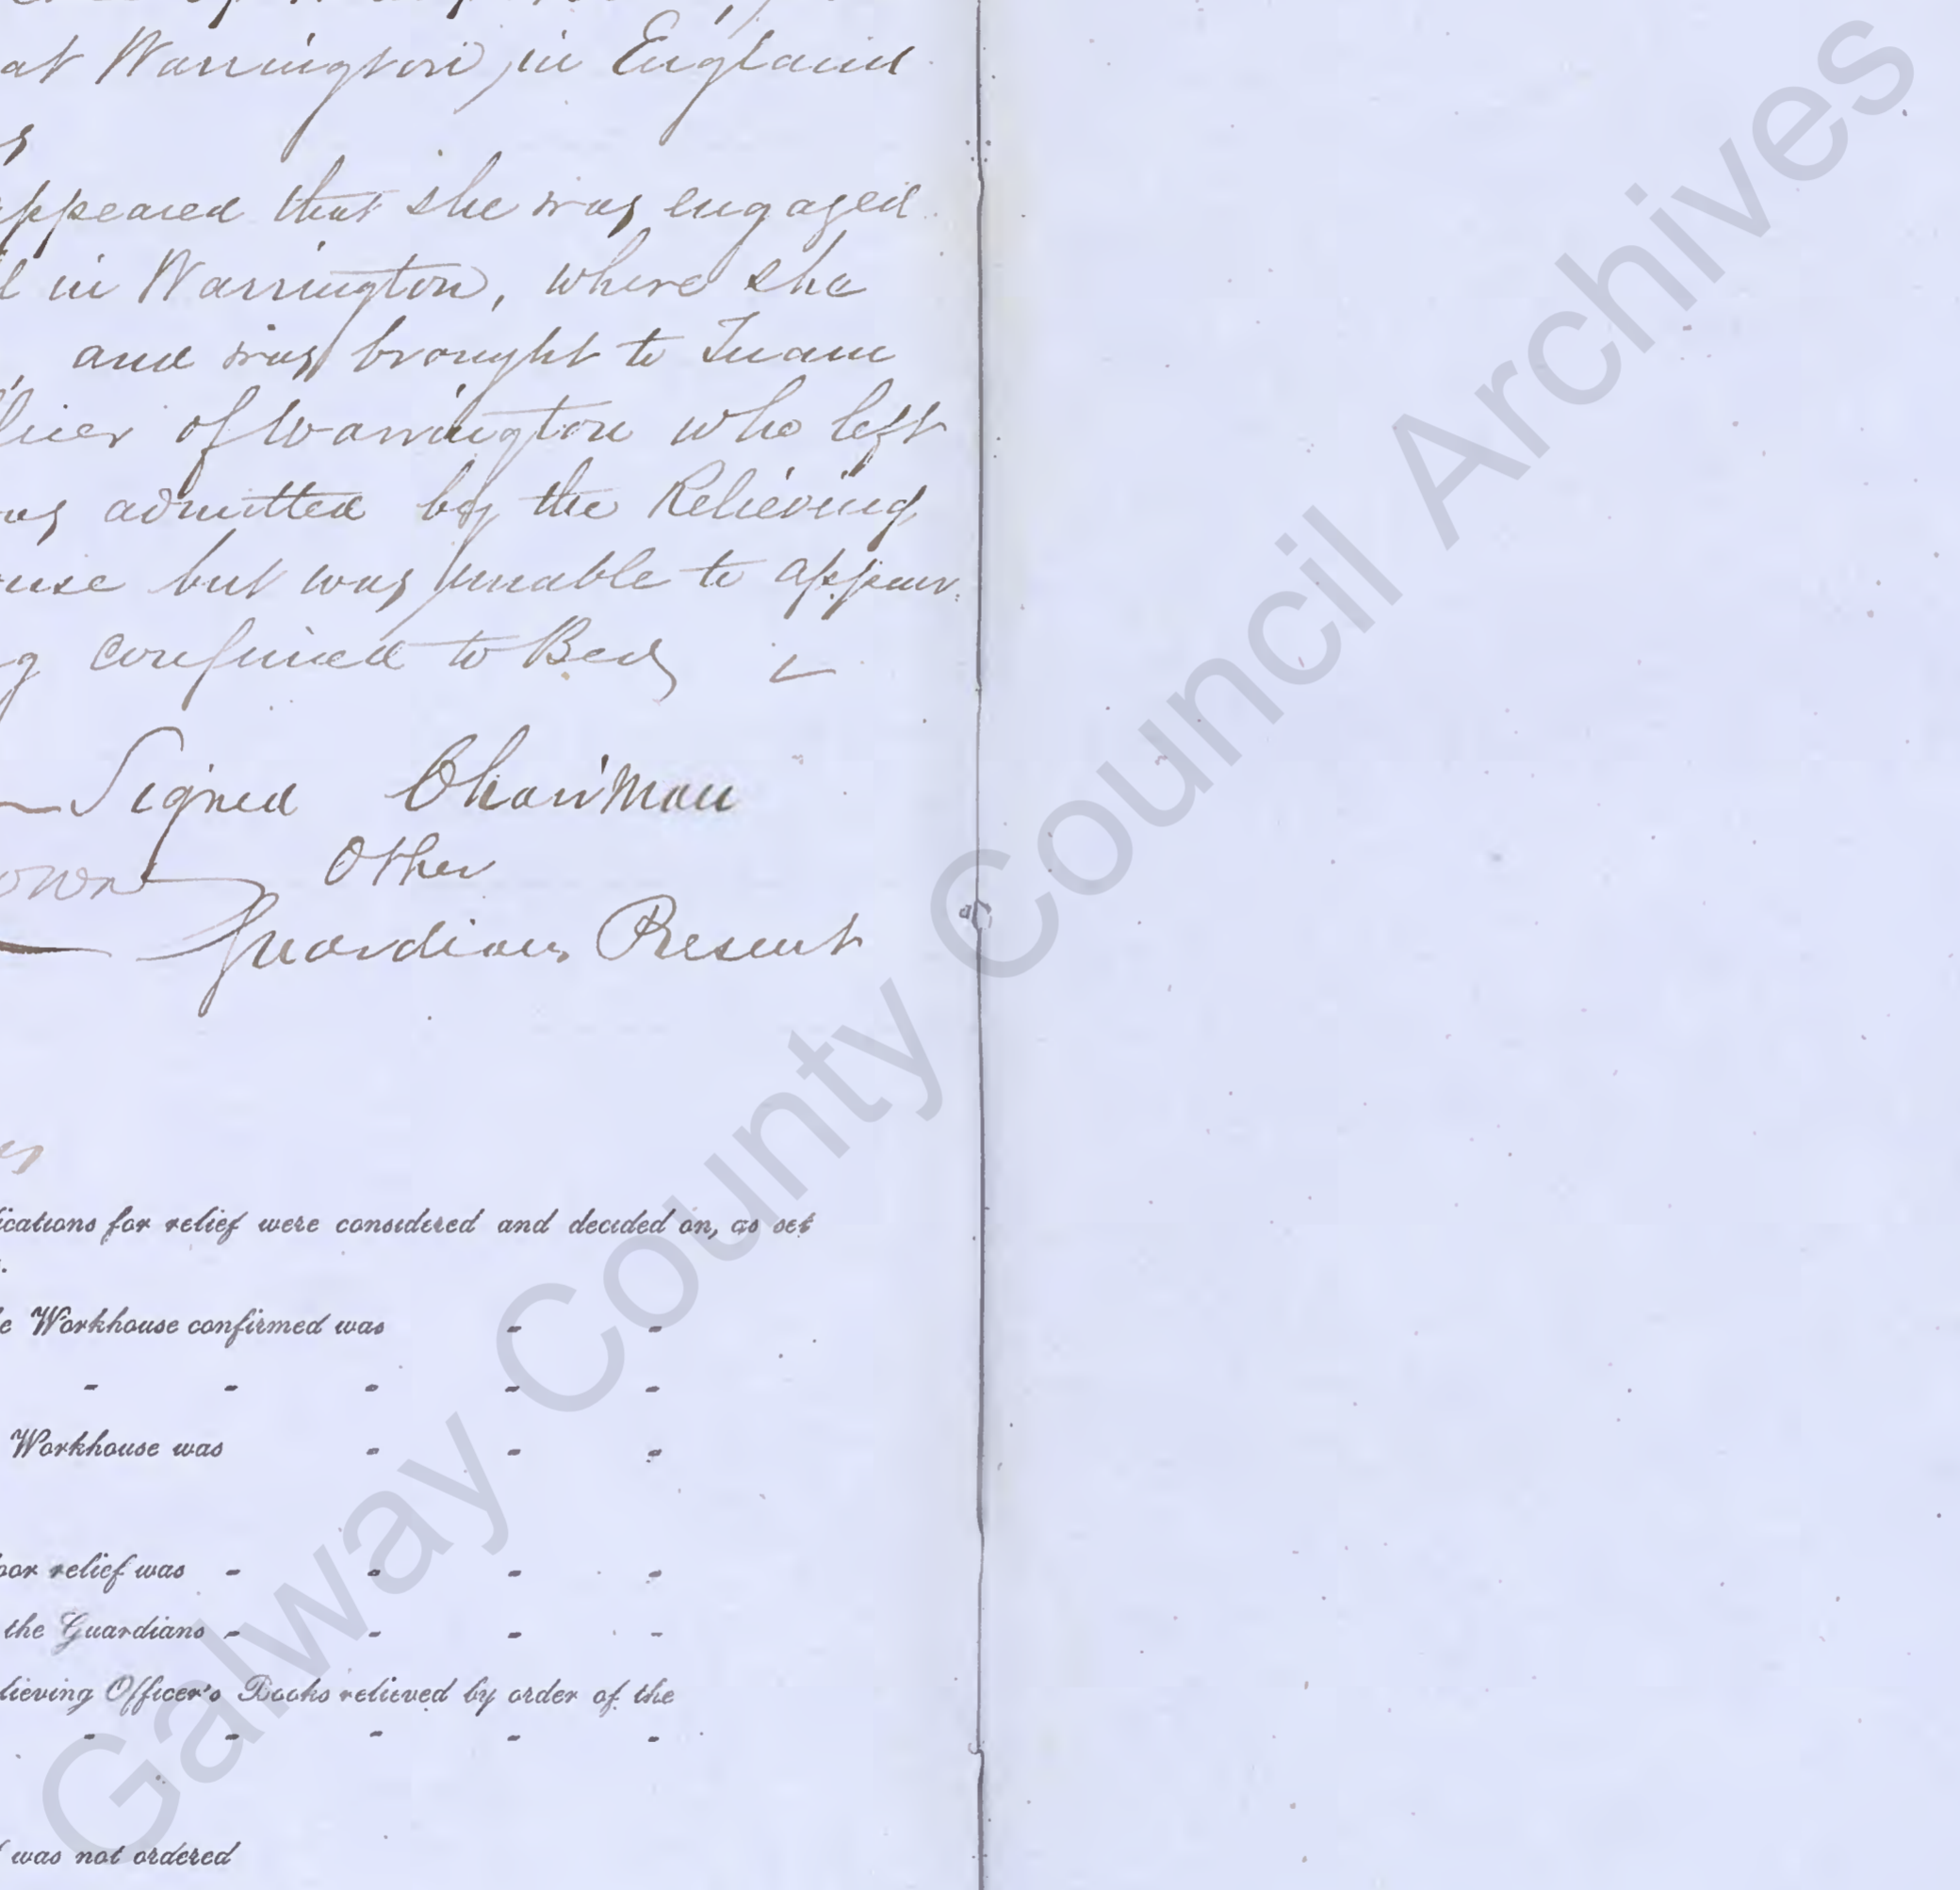 at Warrington, in England
appeared that she was engaged
in Warrington, where she
and was brought to Tuam
of Warrington who left
was admitted by the Relieving
but was unable to appear.
confined to Bed
Signed Chairman
Other
Guardians Present
ications for relief were considered and decided on, as set
e Workhouse confirmed was - -
- - - - -
Workhouse was - - -
oor relief was - - - -
the Guardians - - - -
lieving Officer's Books relieved by order of the
- - - - -
was not ordered
Galway County Council Archives